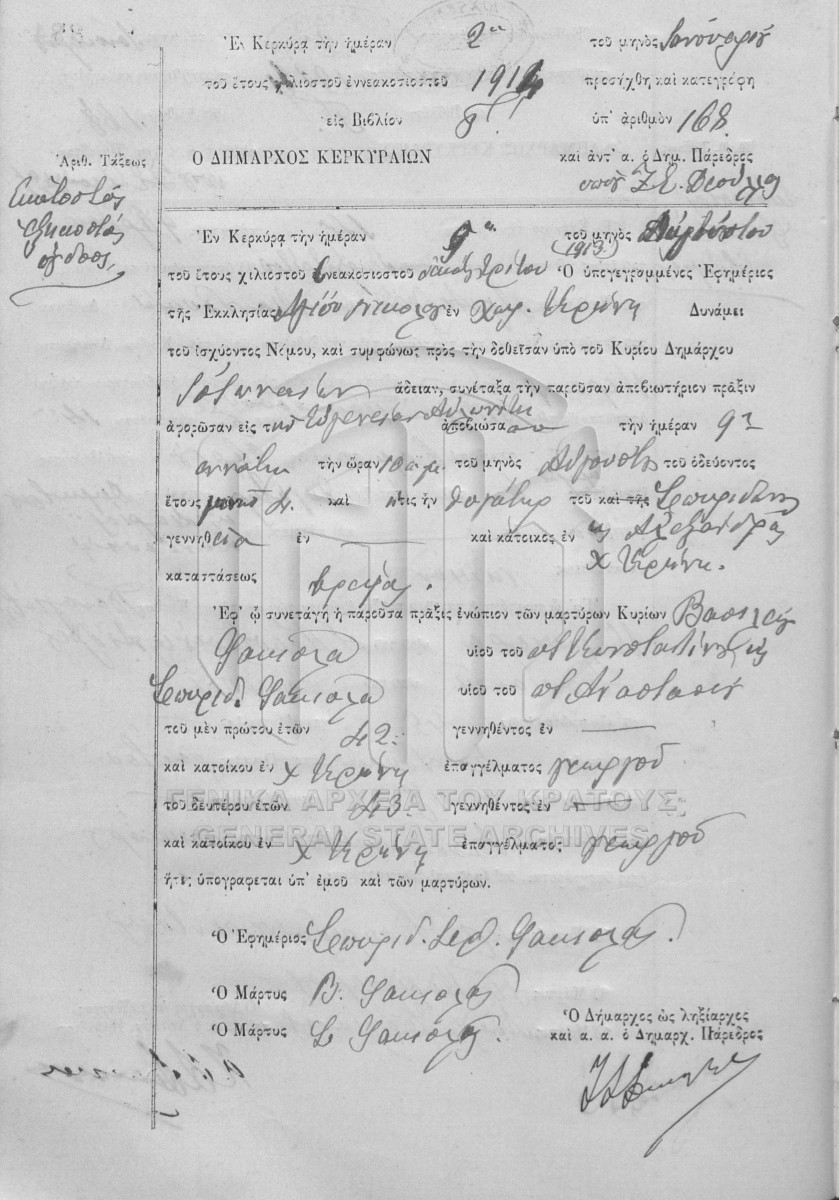 Ἐν Κερκύρᾳ τὴν ἡμέραν 2αν τοῦ μηνὸς Ἰανουαρίου
τοῦ ἔτους χιλιοστοῦ ἐννεακοσιοστοῦ 1914 προσήχθη καὶ κατεγράφη
εἰς Βιβλίον ὑπ' ἀριθμὸν 168.
Ὁ ΔΗΜΑΡΧΟΣ ΚΕΡΚΥΡΑΙΩΝ καὶ ἀντ' α. ὁ Δημ. Πάρεδρος
Ἀριθ. Τάξεως
Ἑκατοστὸς
ἑξηκοστὸς
ὄγδοος
Ἐν Κερκύρᾳ τὴν ἡμέραν 9ην τοῦ μηνὸς Αὐγούστου
(1913)
τοῦ ἔτους χιλιοστοῦ ἐννεακοσιοστοῦ δεκάτου τρίτου Ὁ ὑπογεγραμμένος Ἐφημέριος
τῆς Ἐκκλησίας Ἁγίου Νικολάου ἐν χωρ. Δυνάμει
τοῦ ἰσχύοντος Νόμου, καὶ συμφώνως πρὸς τὴν δοθεῖσαν ὑπὸ τοῦ Κυρίου Δημάρχου
ἄδειαν, συνέταξα τὴν παροῦσαν ἀποβιωτήριον πρᾶξιν
ἀφορῶσαν εἰς τὴν Εὐγενείαν ἀποβιώσασαν τὴν ἡμέραν 9η
ἐννάτη τὴν ὥραν 10 π.μ. τοῦ μηνὸς Αὐγούστου τοῦ ὁδεύοντος
ἔτους μηνῶν 4. καὶ ἥτις ἦν θυγάτηρ τοῦ καὶ τῆς Σπυρίδωνος
γεννηθεῖσα ἐν — καὶ κάτοικος ἐν κ Ἀλεξάνδρας
καταστάσεως βρέφος.
Ἐφ' ᾧ συνετάγη ἡ παροῦσα πρᾶξις ἐνώπιον τῶν μαρτύρων Κυρίων Βασιλείου
Φακιολᾶ υἱοῦ τοῦ ποτ Κωνσταντίνου κ
Σπυρίδ. Φακιολᾶ υἱοῦ τοῦ ποτ Ἀναστασίου
τοῦ μὲν πρώτου ἐτῶν 42. γεννηθέντος ἐν —
καὶ κατοίκου ἐν χ ἐπαγγέλματος γεωργοῦ
ΓΕΝΙΚΑ ΑΡΧΕΙΑ ΤΟΥ ΚΡΑΤΟΥΣ
τοῦ δευτέρου ἐτῶν 43. γεννηθέντος ἐν —
GENERAL STATE ARCHIVES
καὶ κατοίκου ἐν χ ἐπαγγέλματος γεωργοῦ
ἥτις ὑπογράφεται ὑπ' ἐμοῦ καὶ τῶν μαρτύρων.
Ὁ Ἐφημέριος Σπυρίδ. Ἱερ. Φακιολᾶς.
Ὁ Μάρτυς Β. Φακιολᾶς
Ὁ Μάρτυς Σ Φακιολᾶς.
Ὁ Δήμαρχος ὡς ληξίαρχος
καὶ α. α. ὁ Δημαρχ. Πάρεδρος